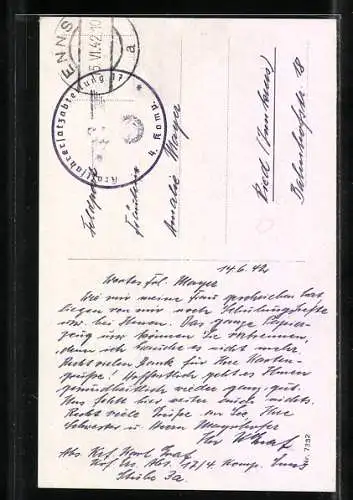 ENNS
5.VI.42.10
a
Kraftfahrersatzabteilung 17
4. Komp.
Feldpost
Fräulein
Amalie Mayer
Ried (Innkreis)
Bahnhofstr. 18
14.6.42
Wertes Frl. Mayer
Wie mir meine Frau geschrieben hat
liegen von mir noch Schulungshefte
usw. bei Ihnen. Das ganze Papier-
zeug usw können Sie verbrennen,
denn ich brauche es nicht mehr.
Recht vielen Dank für Ihre Karten-
grüße! Hoffentlich geht es Ihnen
gesundheitlich wieder ganz gut.
Uns fehlt hier weiter nichts.
Recht viele Grüße an Sie, Ihre
Schwester u. Herrn
Ihr
Abs. Karl
Kraf. Ers. Abt. 17/4 Komp. Enns
Stube 3a.
Nr. 7332